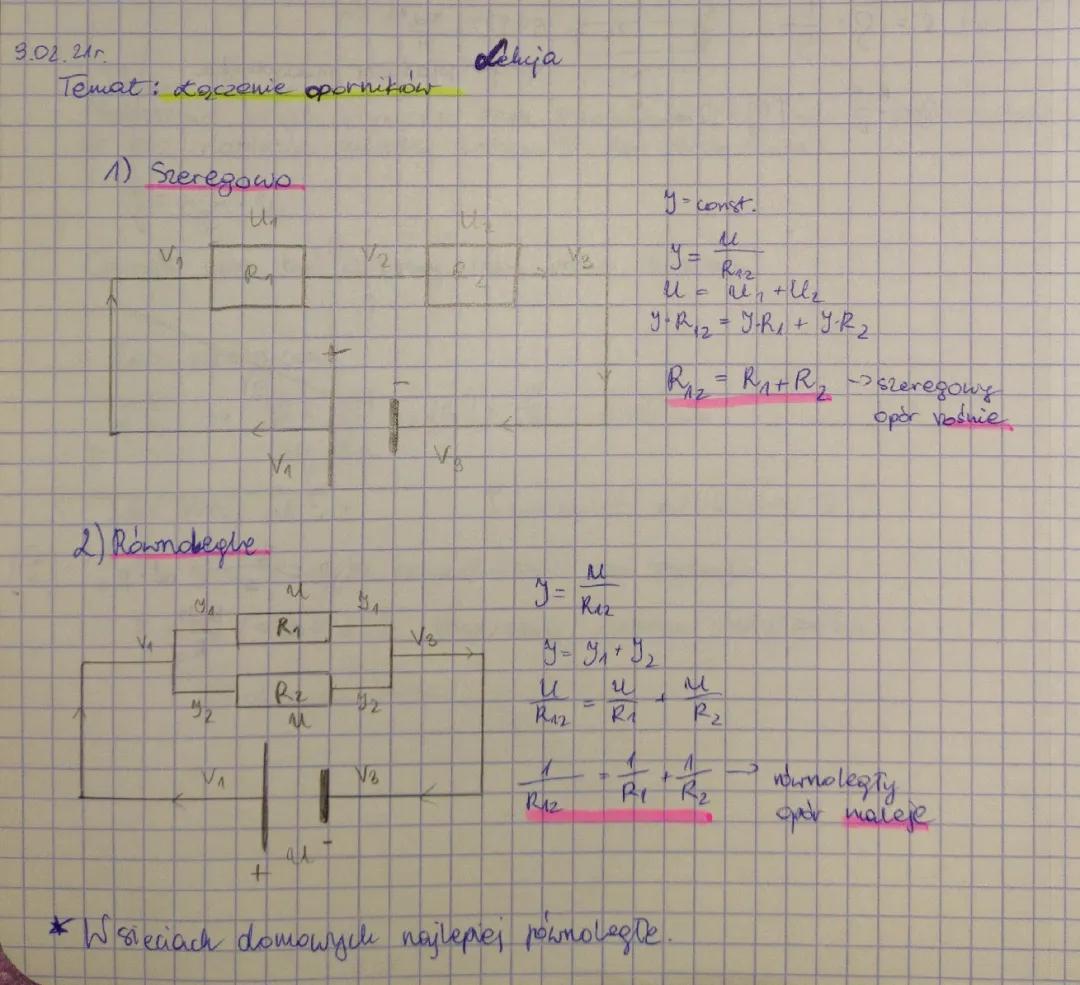 9.02.21r.
Lekcja
Temat: Łączenie oporników
1) Szeregowo
U₁ U₂
V₁ R₁ V₂ R₂ V₃
+ -
V₁ V₃
y = const.
y = U/R₁₂
U = U₁ + U₂
y·R₁₂ = y·R₁ + y·R₂
R₁₂ = R₁ + R₂ → szeregowy
opór rośnie
2) Równoległe
U
y₁ R₁ y₁
V₁ V₃
y₂ R₂ y₂
U
V₁ V₃
U -
+
y = U/R₁₂
y = y₁ + y₂
U/R₁₂ = U/R₁ + U/R₂
1/R₁₂ = 1/R₁ + 1/R₂ → równoległy
opór maleje
* W sieciach domowych najlepiej równoległe.